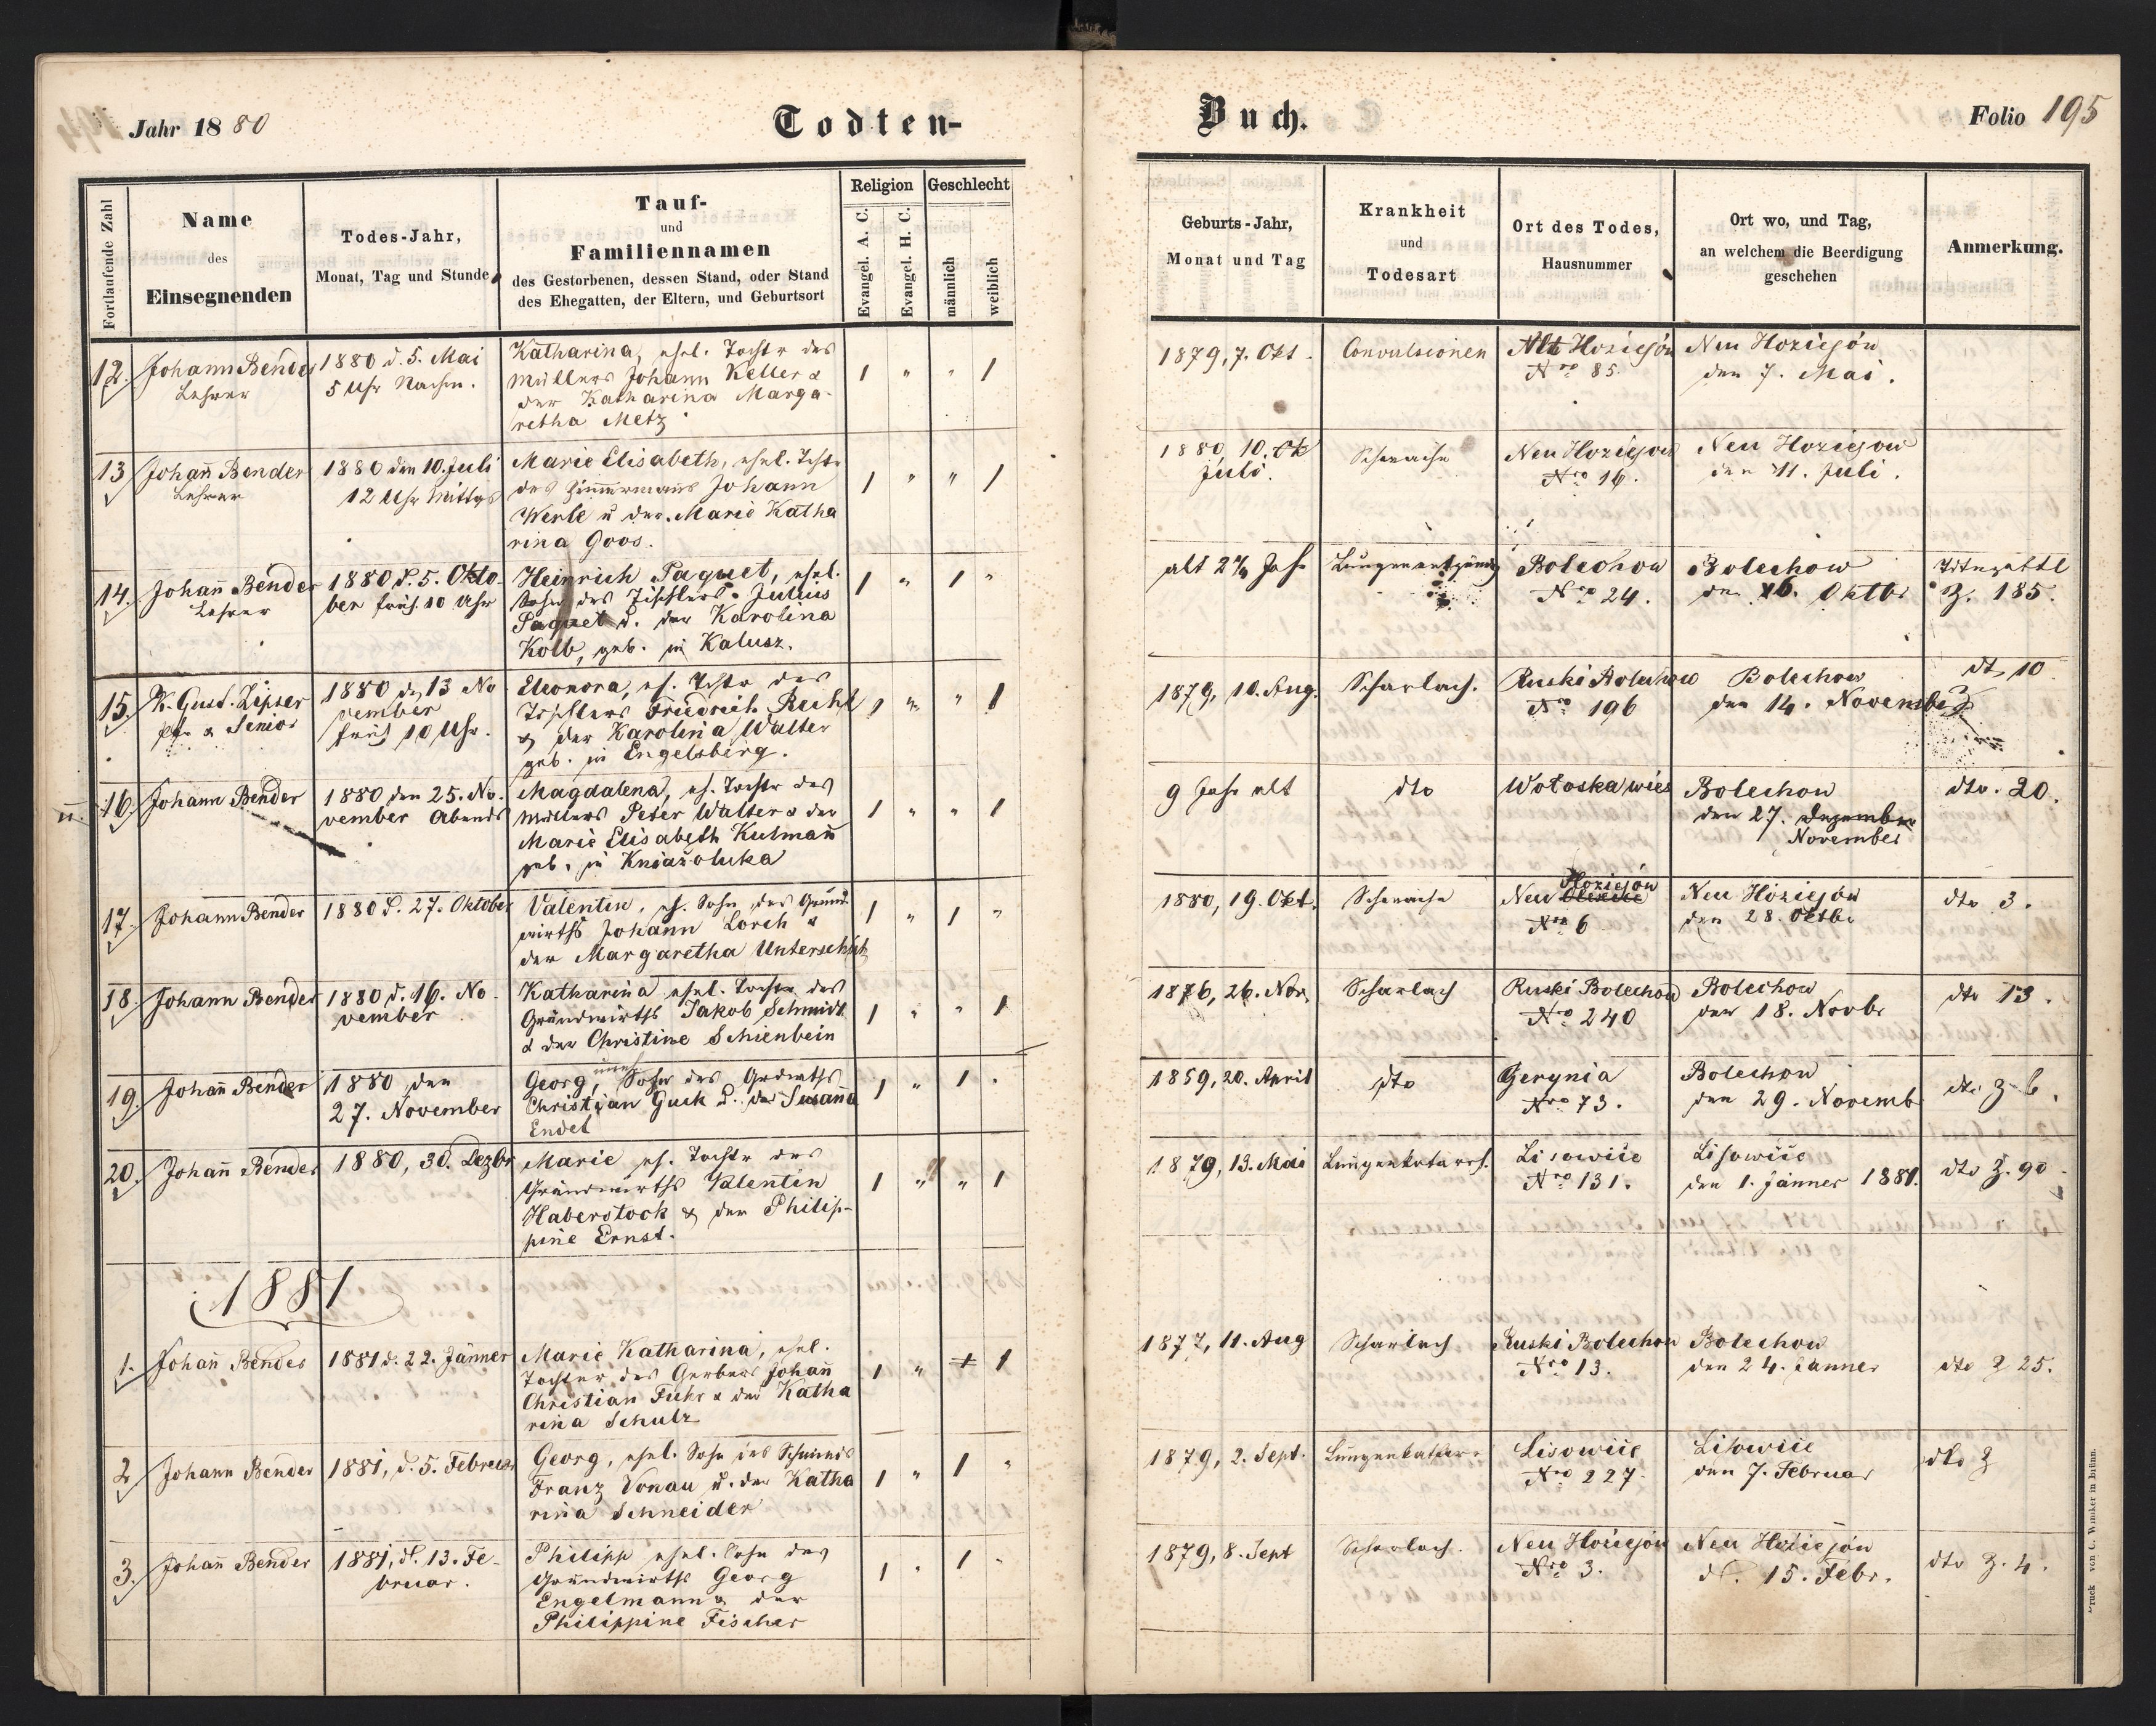 Jahr 1880
Todten-
Buch.
Folio 195
Fortlaufende Zahl
Name
des
Einsegnenden
Todes-Jahr,
Monat, Tag und Stunde
Tauf-
und
Familiennamen
des Gestorbenen, dessen Stand, oder Stand
des Ehegatten, der Eltern, und Geburtsort
Religion
Evangel. A. C.
Evangel. H. C.
Geschlecht
männlich
weiblich
Geburts-Jahr,
Monat und Tag
Krankheit
und
Todesart
Ort des Todes,
Hausnummer
Ort wo, und Tag,
an welchem die Beerdigung
geschehen
Anmerkung.
12.
Johann Bender
Lehrer
1880 d. 5. Mai
5 Uhr Nachm.
Katharina, ehel. Tochtr des
Müllers Johann Keller &
der Katharina Marga-
retha Metz
1 " " 1
1879, 7. Okt.
Convulsionen
Alt Hoziejów
Nro 85.
Neu Hoziejów
den 7. Mai.
13
Johañ Bender
Lehrer
1880 den 10. Juli
12 Uhr Mittgs
Marie Elisabeth, ehel. Tchtr
des Zim̄ermans Johann
Werle u der Marie Katha
rina Goos.
1 " " 1
1880, 10.
Juli.
Schwäche
Neu Hoziejow
Nro 16.
Neu Hoziejow
den 11. Juli.
14.
Johañ Bender
Lehrer
1880 d. 5. Okto-
ber früh 10 Uhr
Heinrich Paquet, ehel.
Sohn des Tischlers Julius
Paquet u. der Karolina
Kolb, geb. in Kalusz.
1 " 1 "
alt 2 3/4 Jahr
Lungenentzündg
Bolechow
Nro 24.
Bolechow
den 6. Oktbr
Z. 185.
15.
K. Gust. Lipser
Pfr & Senior
1880 d. 13 No
vember
früh 10 Uhr.
Eleonora, eh. Tchtr des
Tischlers Friedrich Riehl
& der Karolina Walter
geb. in Engelsberg.
1 " " 1
1879, 10. Aug.
Scharlach.
Ruski Bolechow
Nro 196
Bolechow
den 14. November
dt. 10
16.
Johann Bender
1880 den 25. No-
vember Abends
Magdalena, eh. Tochtr des
Müllers Peter Walter & der
Marie Elisabeth Kulmañ
geb. in Kniażoluka
1 " " 1
9 Jahr alt
dto
Wołoska wies
Bolechow
den 27. Dezember
November
dto. 20.
17.
Johann Bender
1880 d. 27. Oktober
Valentin, eh. Sohn des Grund-
wirths Johann Lorch &
der Margaretha Unterschütz
1 " 1 "
1880, 19. Okt.
Schwäche
Hoziejów
Neu
Nro 6
Neu Hoziejów
den 28. Oktbr
dto 3.
18.
Johann Bender
1880 d. 16. No-
vember
Katharina ehel. Tochtr des
Grundwirths Jakob Schmidt
& der Christine Schienbein
1 " " 1
1876, 26. Nov.
Scharlach
Ruski Bolechow
Nro 240
Bolechow
den 18. Novbr
dto 13.
19.
Johañ Bender
1880 den
27. November
Georg, Sohn des Grdwths
Christian Guck u. der Susaña
Endel
1 " 1 "
1859, 20. April
dto
Gerynia
Nro 73.
Bolechow
den 29. Novemb
dto Z 6.
20.
Johañ Bender
1880, 30. Dezbr
Marie eh. Tochtr des
Grundwirths Valentin
Haberstock & der Philip-
pine Ernst.
1 " " 1
1879, 13. Mai
Lungenkatarrh.
Lisowiic
Nro 131.
Lisowiic
den 1. Jänner 1881.
dto Z. 90
1881
1.
Johañ Bender
1881 d. 22. Jänner
Marie Katharina, ehel.
Tochter des Gerbers Johañ
Christian Fuhr & der Katha
rina Schulz
1 " 1
1877, 11. Aug
Scharlach
Ruski Bolechow
Nro 13.
Bolechow
den 24. Janner
dto Z 25.
2
Johann Bender
1881, d. 5. Februar
Georg, ehel. Sohn des Schmieds
Franz Vonau u. der Katha
rina Schneider
1 " 1 "
1879, 2. Sept.
Lungenkatarr.
Lisowiic
Nro 227.
Lisowiic
den 7. Februar
dto Z
3.
Johañ Bender
1881, d. 13. Fe-
bruar.
Philipp ehel. Sohn des
Grundwirths Georg
Engelmann & der
Philippine Fischer
1 " 1 "
1879, 8. Sept
Scharlach.
Neu Hoziejów
Nro 3.
Neu Hoziejów
d. 15. Febr.
dto Z. 4.
Druck von C. Winiker in Brünn.